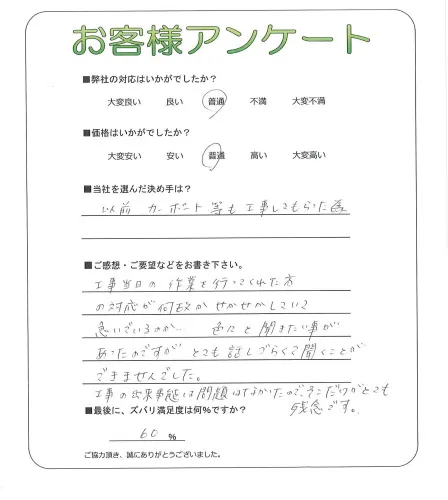 お客様アンケート
■弊社の対応はいかがでしたか?
大変良い 良い 普通 不満 大変不満
■価格はいかがでしたか?
大変安い 安い 普通 高い 大変高い
■当社を選んだ決め手は?
以前 カーポート 等も 工事してもらった為
■ご感想・ご要望などをお書き下さい。
工事当日の 作業を行ってくれた方
の対応が何故かせかせかしていて
急いでいるのか… 色々と聞きたい事が
あったのですが とても 話しづらくて聞くことが
できませんでした。
工事の出来事態は問題はなかたので、そこだけがとても
残念です。
■最後に、ズバリ満足度は何%ですか?
60 %
ご協力頂き、誠にありがとうございました。